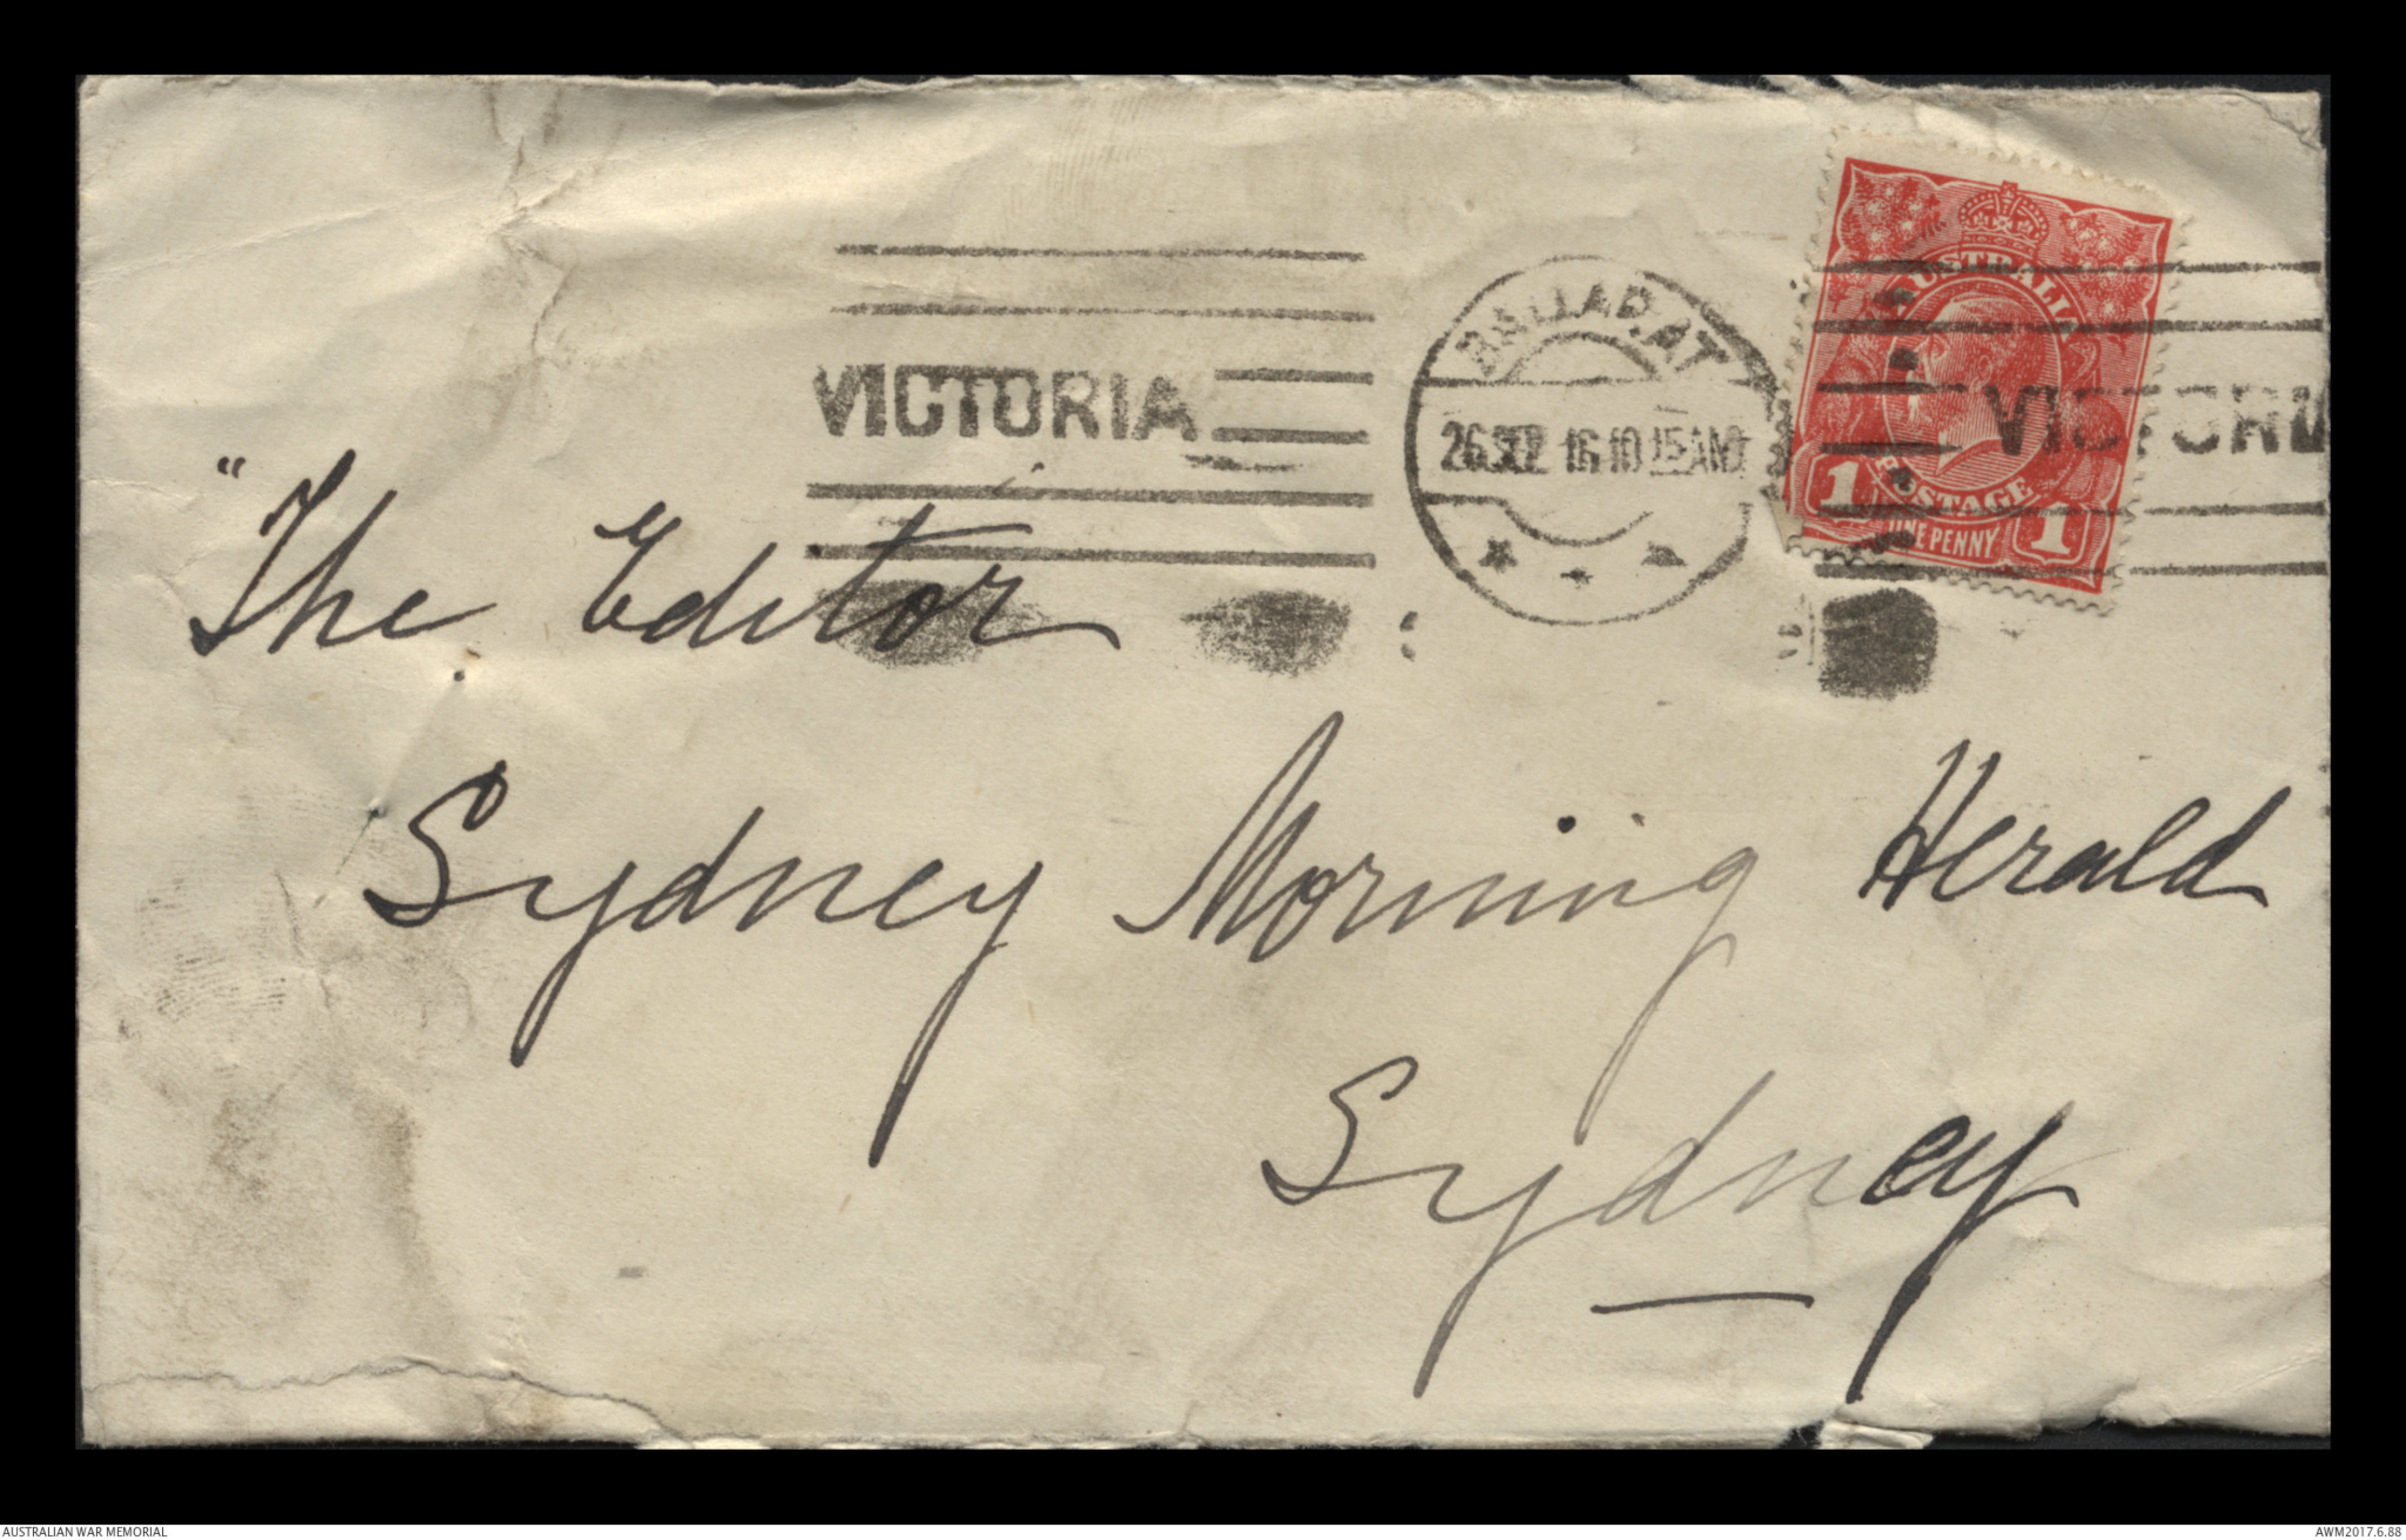 VICTORIA
BALLARAT
26 SEP 16 10 15 AM
AUSTRALIA
POSTAGE
1 ONE PENNY 1
VICTORIA
"The Editor
Sydney Morning Herald
Sydney
AUSTRALIAN WAR MEMORIAL
AWM2017.6.88